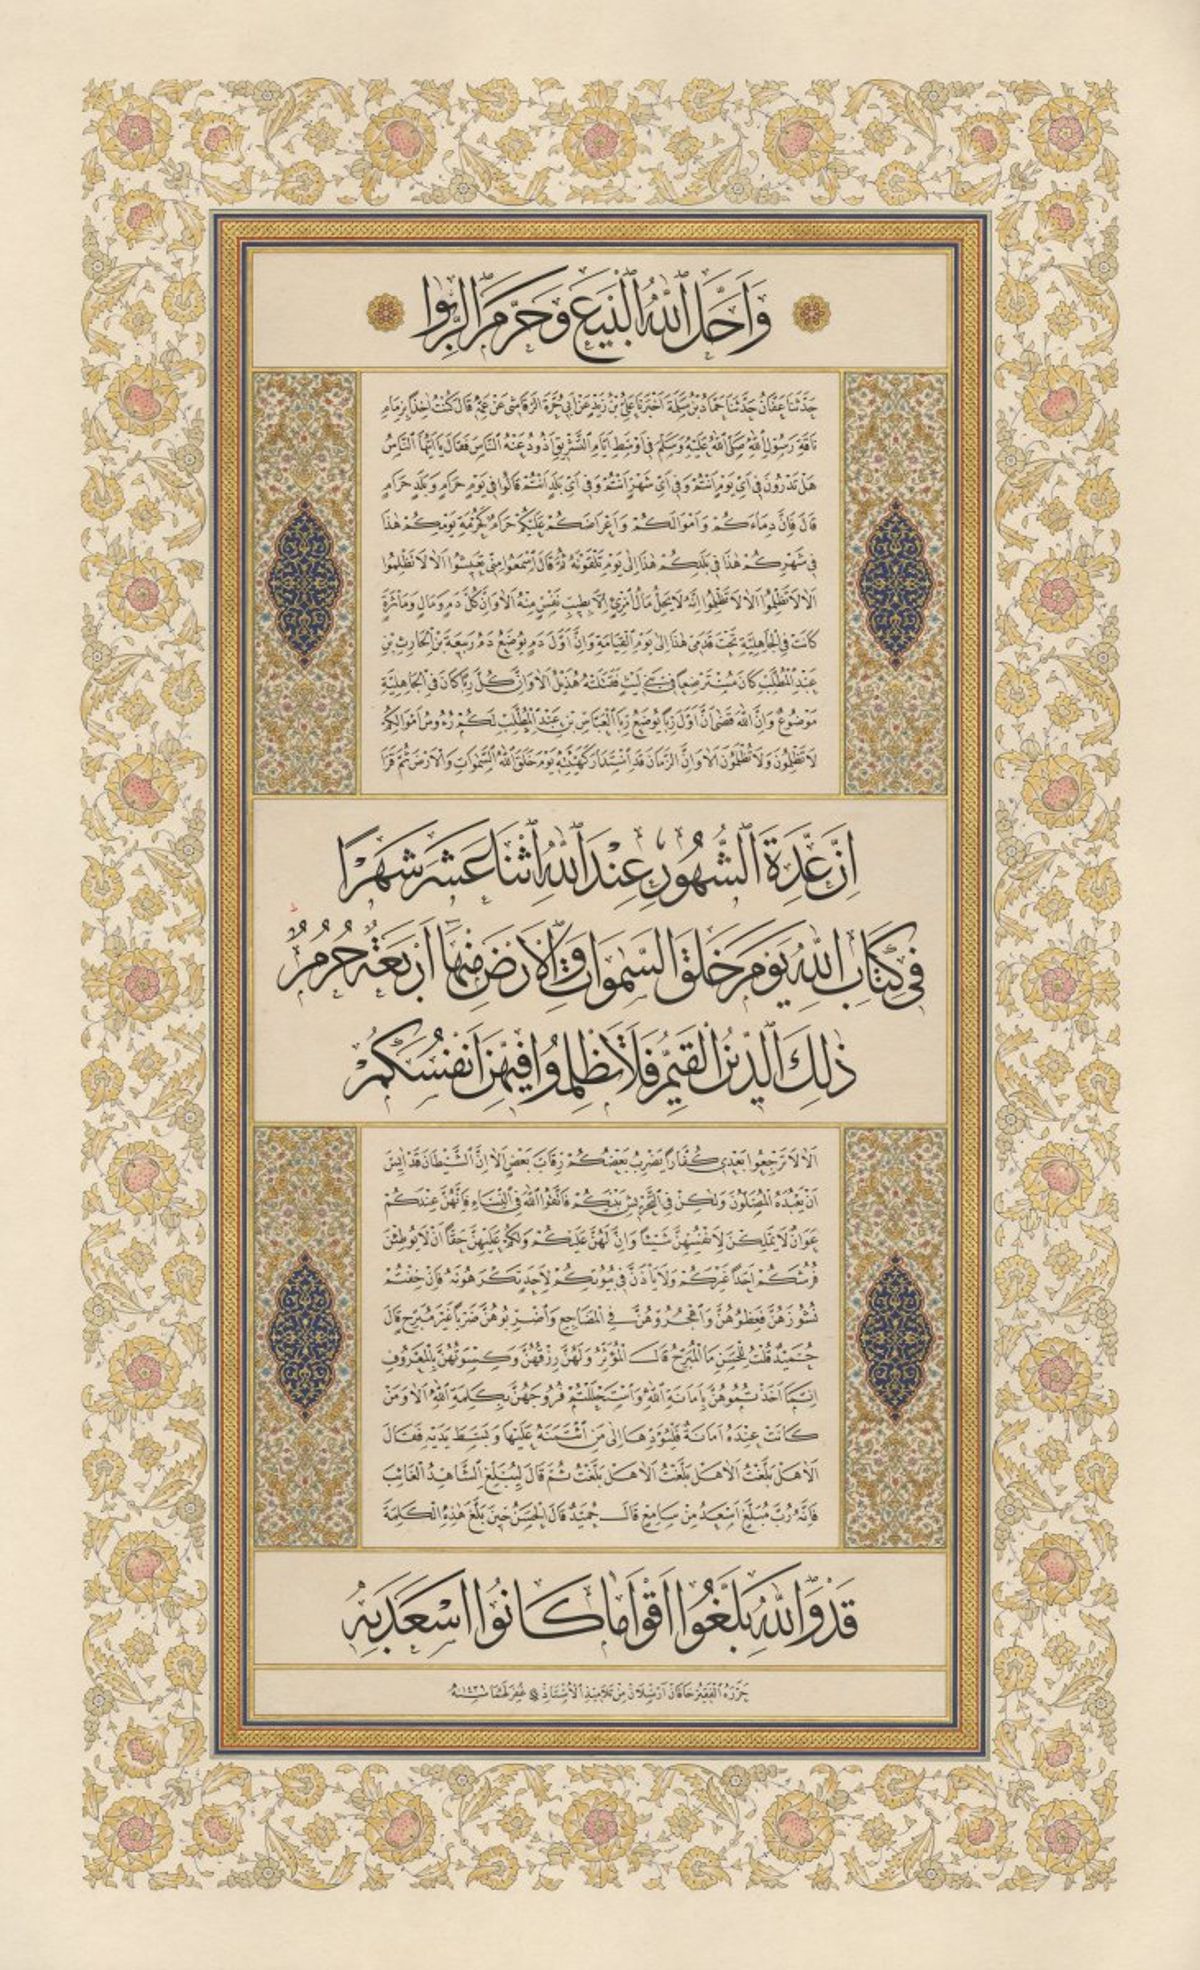 وَاَحَلَّ اللهُ الْبَيْعَ وَحَرَّمَ الرِّبٰوا
حَدَّثَنَا عَفَّانُ حَدَّثَنَا حَمَّادُ بْنُ سَلَمَةَ اَخْبَرَنَا عَلِيُّ بْنُ زَيْدٍ عَنْ اَبِي حُرَّةَ الرَّقَاشِيِّ عَنْ عَمِّهِ قَالَ كُنْتُ اٰخِذًا بِزِمَامِ
نَاقَةِ رَسُولِ اللهِ صَلَّى اللهُ عَلَيْهِ وَسَلَّمَ فِي اَوْسَطِ اَيَّامِ التَّشْرِيقِ اَذُودُ عَنْهُ النَّاسَ فَقَالَ يَا اَيُّهَا النَّاسُ
هَلْ تَدْرُونَ فِي اَيِّ يَوْمٍ اَنْتُمْ وَفِي اَيِّ شَهْرٍ اَنْتُمْ وَفِي اَيِّ بَلَدٍ اَنْتُمْ قَالُوا فِي يَوْمٍ حَرَامٍ وَبَلَدٍ حَرَامٍ
قَالَ فَاِنَّ دِمَاءَكُمْ وَاَمْوَالَكُمْ وَاَعْرَاضَكُمْ عَلَيْكُمْ حَرَامٌ كَحُرْمَةِ يَوْمِكُمْ هٰذَا
فِي شَهْرِكُمْ هٰذَا فِي بَلَدِكُمْ هٰذَا اِلٰى يَوْمِ تَلْقَوْنَهُ ثُمَّ قَالَ اسْمَعُوا مِنِّي تَعِيشُوا اَلَا لَا تَظْلِمُوا
اَلَا لَا تَظْلِمُوا اَلَا لَا تَظْلِمُوا اِنَّهُ لَا يَحِلُّ مَالُ امْرِئٍ اِلَّا بِطِيبِ نَفْسٍ مِنْهُ اَلَا وَاِنَّ كُلَّ دَمٍ وَمَالٍ وَمَأْثَرَةٍ
كَانَتْ فِي الْجَاهِلِيَّةِ تَحْتَ قَدَمِي هٰذِهِ اِلٰى يَوْمِ الْقِيَامَةِ وَاِنَّ اَوَّلَ دَمٍ يُوضَعُ دَمُ رَبِيعَةَ بْنِ الْحَارِثِ بْنِ
عَبْدِ الْمُطَّلِبِ كَانَ مُسْتَرْضِعًا فِي بَنِي لَيْثٍ فَقَتَلَتْهُ هُذَيْلٌ اَلَا وَاِنَّ كُلَّ رِبًا كَانَ فِي الْجَاهِلِيَّةِ
مَوْضُوعٌ وَاِنَّ اللهَ قَضٰى اَنَّ اَوَّلَ رِبًا يُوضَعُ رِبَا الْعَبَّاسِ بْنِ عَبْدِ الْمُطَّلِبِ لَكُمْ رُءُوسُ اَمْوَالِكُمْ
لَا تَظْلِمُونَ وَلَا تُظْلَمُونَ اَلَا وَاِنَّ الزَّمَانَ قَدِ اسْتَدَارَ كَهَيْئَتِهِ يَوْمَ خَلَقَ اللهُ السَّمٰوَاتِ وَالْاَرْضَ ثُمَّ قَرَأَ
اِنَّ عِدَّةَ الشُّهُورِ عِنْدَ اللهِ اثْنَا عَشَرَ شَهْرًا
فِي كِتَابِ اللهِ يَوْمَ خَلَقَ السَّمٰوَاتِ وَالْاَرْضَ مِنْهَا اَرْبَعَةٌ حُرُمٌ
ذٰلِكَ الدِّينُ الْقَيِّمُ فَلَا تَظْلِمُوا فِيهِنَّ اَنْفُسَكُمْ
اَلَا لَا تَرْجِعُوا بَعْدِي كُفَّارًا يَضْرِبُ بَعْضُكُمْ رِقَابَ بَعْضٍ اَلَا اِنَّ الشَّيْطَانَ قَدْ اَيِسَ
اَنْ يَعْبُدَهُ الْمُصَلُّونَ وَلٰكِنْ فِي التَّحْرِيشِ بَيْنَكُمْ فَاتَّقُوا اللهَ فِي النِّسَاءِ فَاِنَّهُنَّ عِنْدَكُمْ
عَوَانٌ لَا يَمْلِكْنَ لِاَنْفُسِهِنَّ شَيْئًا وَاِنَّ لَهُنَّ عَلَيْكُمْ وَلَكُمْ عَلَيْهِنَّ حَقًّا اَنْ لَا يُوطِئْنَ
فُرُشَكُمْ اَحَدًا غَيْرَكُمْ وَلَا يَأْذَنَّ فِي بُيُوتِكُمْ لِاَحَدٍ تَكْرَهُونَهُ فَاِنْ خِفْتُمْ
نُشُوزَهُنَّ فَعِظُوهُنَّ وَاهْجُرُوهُنَّ فِي الْمَضَاجِعِ وَاضْرِبُوهُنَّ ضَرْبًا غَيْرَ مُبَرِّحٍ قَالَ
حُمَيْدٌ قُلْتُ لِلْحَسَنِ مَا الْمُبَرِّحُ قَالَ الْمُؤَثِّرُ وَلَهُنَّ رِزْقُهُنَّ وَكِسْوَتُهُنَّ بِالْمَعْرُوفِ
اِنَّمَا اَخَذْتُمُوهُنَّ بِاَمَانَةِ اللهِ وَاسْتَحْلَلْتُمْ فُرُوجَهُنَّ بِكَلِمَةِ اللهِ اَلَا وَمَنْ
كَانَتْ عِنْدَهُ اَمَانَةٌ فَلْيُؤَدِّهَا اِلٰى مَنِ ائْتَمَنَهُ عَلَيْهَا وَبَسَطَ يَدَيْهِ فَقَالَ
اَلَا هَلْ بَلَّغْتُ اَلَا هَلْ بَلَّغْتُ اَلَا هَلْ بَلَّغْتُ ثُمَّ قَالَ لِيُبَلِّغِ الشَّاهِدُ الْغَائِبَ
فَاِنَّهُ رُبَّ مُبَلَّغٍ اَسْعَدُ مِنْ سَامِعٍ قَالَ حُمَيْدٌ قَالَ الْحَسَنُ حِينَ بَلَّغَ هٰذِهِ الْكَلِمَةَ
قَدْ وَاللهِ بَلَّغُوا اَقْوَامًا كَانُوا اَسْعَدَ بِهِ
حَرَّرَهُ الْفَقِيرُ خَاقَانْ اَرْسْلَانْ مِنْ تَلَامِيذِ الْاُسْتَاذِ غُفِرَ لَهُمَا سنة